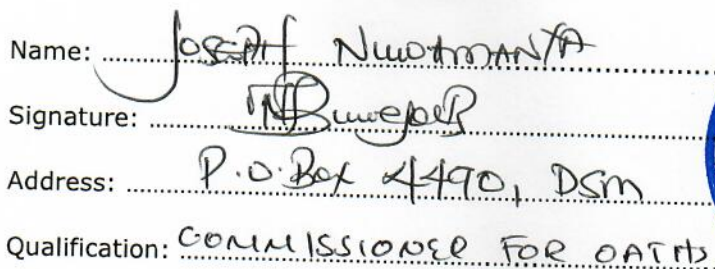 Name: JOSEPH NUWAMANYA
Signature:
Address: P.O.Box 4490, DSM
Qualification: COMMISSIONER FOR OATHS